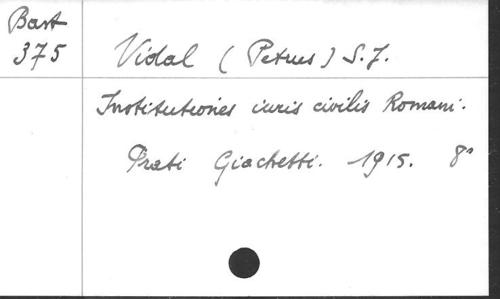 Bart
375
Vidal (Petrus) S.J.
Institutiones iuris civilis Romani.
Prati Giachetti. 1915. 8°